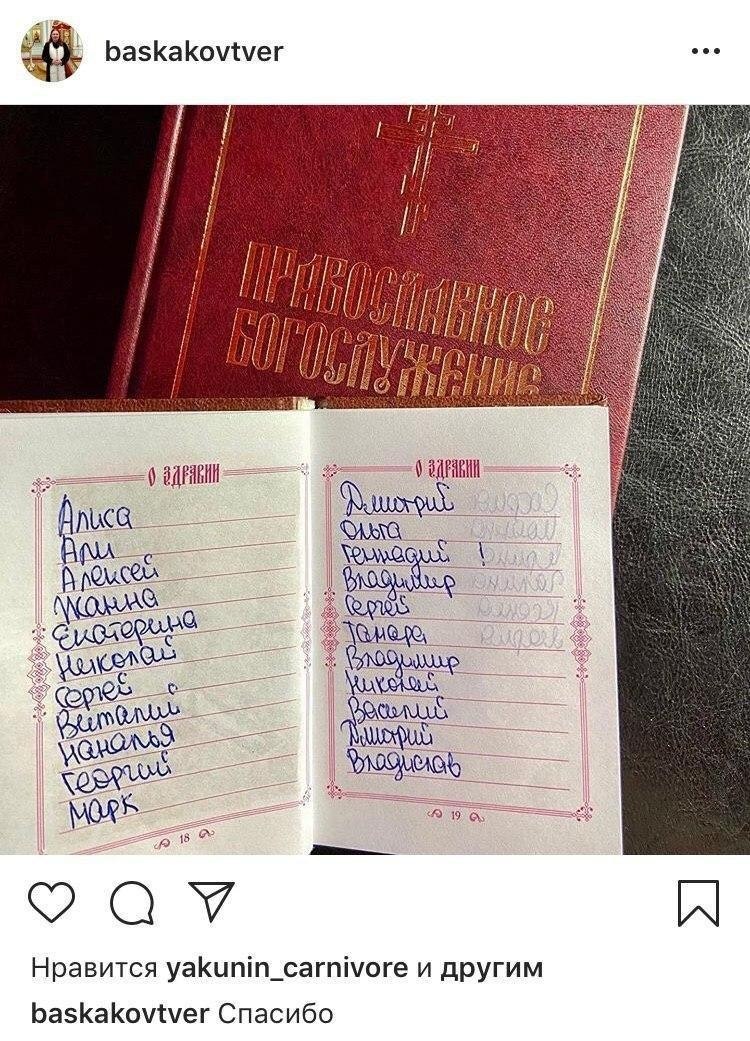 baskakovtver
ПРАВОСЛАВНОЕ
БОГОСЛУЖЕНИЕ
О ЗДРАВИИ
Алиса
Али
Алексей
Жанна
Екатерина
Николай
Сергей
Виталий
Наталья
Георгий
Марк
18
О ЗДРАВИИ
Дмитрий
Ольга
Геннадий !
Владимир
Сергей
Тамара
Владимир
Николай
Василий
Дмитрий
Владислав
19
Нравится yakunin_carnivore и другим
baskakovtver Спасибо